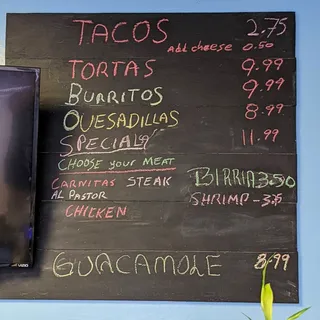 TACOS 2.75
Add cheese 0.50
TORTAS 9.99
BURRITOS 9.99
QUESADILLAS 8.99
SPECIAL 11.99
CHOOSE your MEAT
CARNITAS STEAK BIRRIA 3.50
AL PASTOR SHRIMP - 3.
CHICKEN
GUACAMOLE 8.99
VIZIO